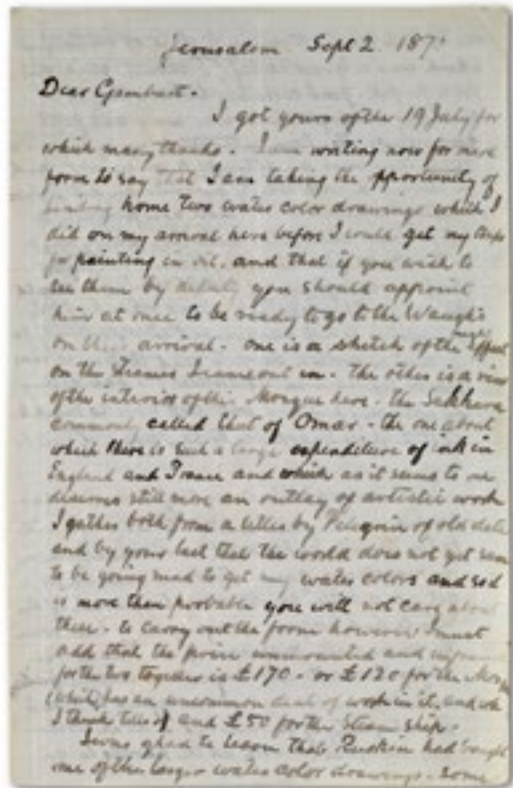 Jerusalem Sept 2 187
Dear Gambart.
I got yours of the 19 July for
which many thanks. I am writing now for mere
form to say that I am taking the opportunity of
sending home two water color drawings which I
did on my arrival here before I could get my things
for painting in oil, and that if you wish to
see them by you should appoint
him at once to be ready to go to the Waugh's
on their arrival. one is a sketch of the effect
on the Steamer I came out in. the other is a view
of the interior of the Mosque here. the Sakhera
commonly called that of Omar. the one about
which there is such a large expenditure of ink in
England and France and which as it seems to me
deserves still more an outlay of artistic work
I gather both from a letter by of old date
and by your last that the world does not yet seem
to be going mad to get my water colors and so it
is more than probable you will not care about
these. to carry out the form however I must
add that the price unmounted and
for the two together is £170. or £120 for the Mosque
(which has an uncommon deal of work in it, and wh
I think tells) and £50 for the Steam ship.
I was glad to learn that Ruskin had bought
one of the larger water color drawings. some